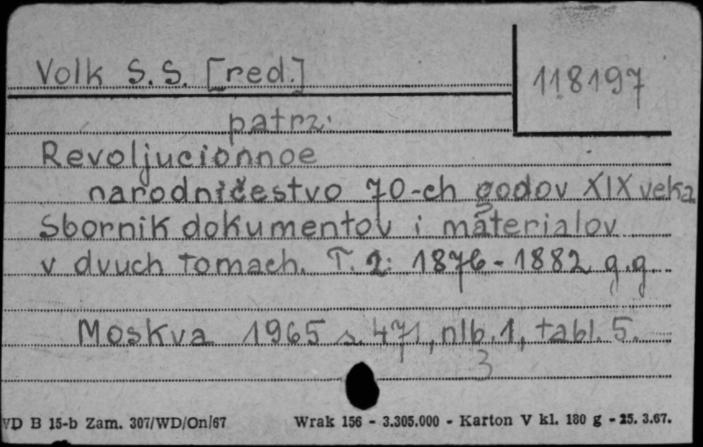 Volk S. S. [red.]
118197
patrz:
Revoljucionnoe
narodničestvo 70-ch godov XIX veka
Sbornik dokumentov i materialov
v dvuch tomach. T. 2: 1876-1882 g.g.
Moskva 1965 s. 471, nlb. 1, tabl. 5.
3
VD B 15-b Zam. 307/WD/On/67 Wrak 156 - 3.305.000 - Karton V kl. 180 g - 25. 3.67.